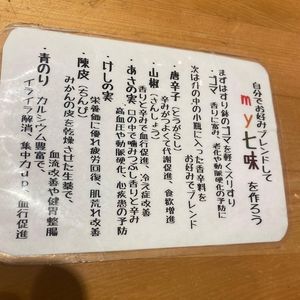 自分でお好みブレンドして
my七味を作ろう
まずはすり鉢のゴマを軽くスリすり
・ゴマ 香りに富み、老化や動脈硬化の予防に
次は升の中の小瓶に入った香辛料を
お好みでブレンド
・唐辛子(とうがらし)
辛みがつよくて代謝促進、食欲増進
・山椒(さんしょう)
香りと辛みで血行促進、冷え症改善
・あさの実 口の中で噛みつぶし香りと辛み
高血圧や動脈硬化、心疾患の予防
・けしの実
栄養価に優れ疲労回復、肌荒れ改善
・陳皮(ちんぴ)
みかんの皮を乾燥させた生薬で、
血流改善や健胃整腸
・青のり カルシウム豊富で
イライラ解消、集中力up、血行促進